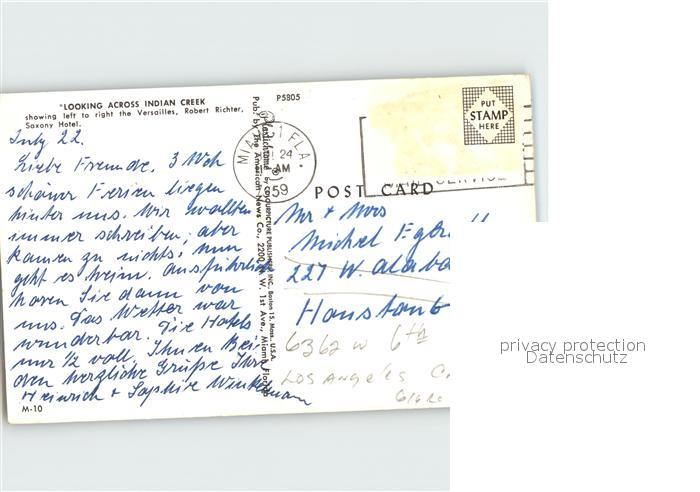 "LOOKING ACROSS INDIAN CREEK
showing left to right the Versailles, Robert Richter,
Saxony Hotel.
P5805
July 22.
Liebe Freunde, 3 Wch
schöner Ferien liegen
hinter uns. Wir wollten
immer schreiben, aber
kamen zu nichts, nun
geht es heim. Ausführlich
hören Sie dann von
uns. Das Wetter war
wunderbar. Die Hotels
nur ½ voll. Ihnen Bei-
den herzliche Grüße Ihre
Heinrich + Sophie
M-10
Plastichrome by COLOURPICTURE PUBLISHERS, INC., Boston 15, Mass. U.S.A.
Pub. by The American News Co., 2200 N. W. 1st Ave., Miami, Florida
MIAMI FLA.
24
AM
1959
PUT
STAMP
HERE
POST CARD
Mr + Mrs
Michel
227 W.
6362 W 6th
LOS ANGELES C
privacy protection
Datenschutz